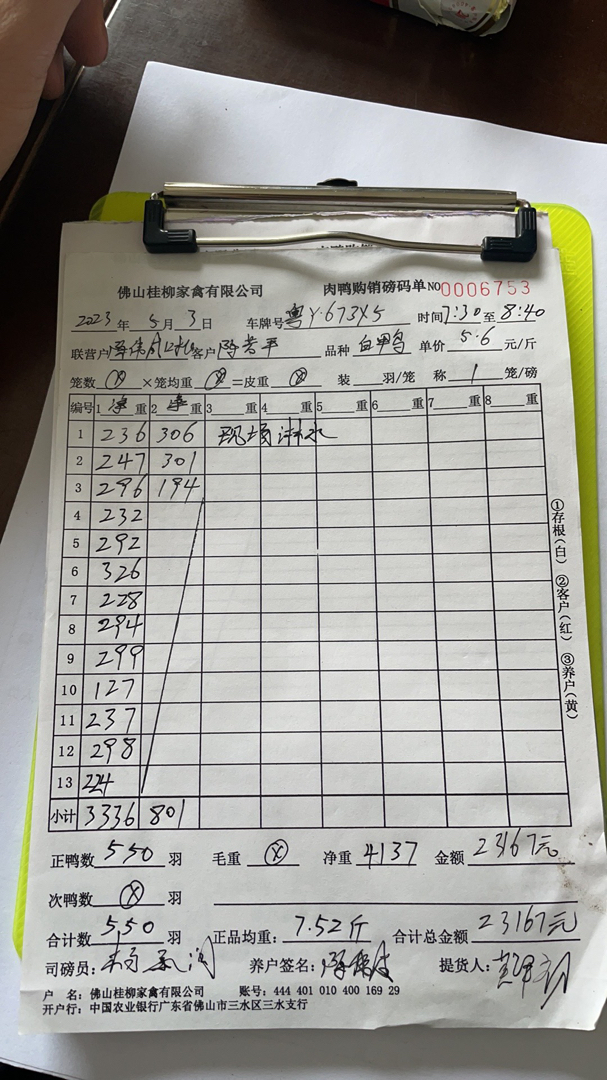 佛山桂柳家禽有限公司 肉鸭购销磅码单 NO 0006753
2023年 5月 3日 车牌号 粤Y·673X5 时间 7:30 至 8:40
联营户 客户 品种 单价 5.6 元/斤
笼数 ⊗ ×笼均重 ⊗ =皮重 ⊗ 装 羽/笼 称 1 笼/磅
编号 1 净 重 2 净 重 3 重 4 重 5 重 6 重 7 重 8 重
1 236 306 现场淋水
2 247 301
3 296 194
4 232
5 292
6 326
7 228
8 294
9 299
10 127
11 237
12 298
13 224
小计 3336 801
正鸭数 550 羽 毛重 ⊗ 净重 4137 金额 23167元
次鸭数 ⊗ 羽
合计数 550 羽 正品均重: 7.52斤 合计总金额 23167元
司磅员: 养户签名: 提货人:
户 名: 佛山桂柳家禽有限公司 账号: 444 401 010 400 169 29
开户行: 中国农业银行广东省佛山市三水区三水支行
①存根(白) ②客户(红) ③养户(黄)